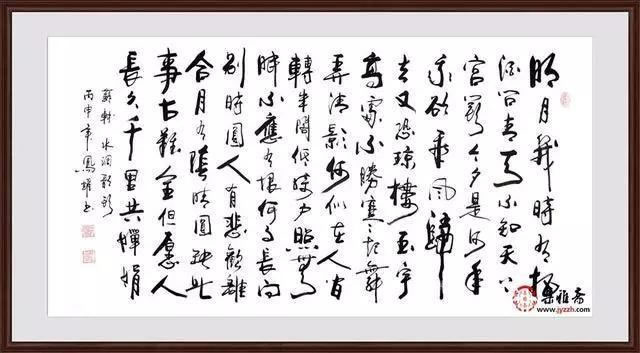 明月幾時有把
酒問青天不知天上
宮闕今夕是何年
我欲乘風歸
去又恐瓊樓玉宇
高處不勝寒起舞
弄清影何似在人間
轉朱閣低綺户照無
眠不應有恨何事長向
别時圓人有悲歡離
合月有陰晴圓缺此
事古難全但願人
長久千里共嬋娟
蘇軾 水調歌頭
丙申年鳳书
雅斋
www.jyzzh.com